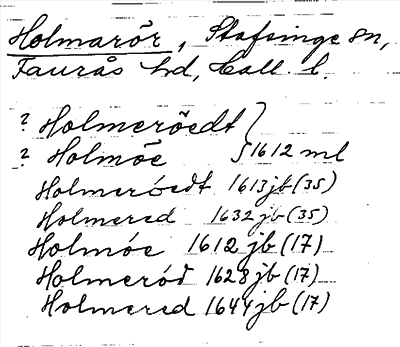 Holmarör, Stafsinge sn,
Faurås hd, Hall. l.
? Holmeröedt
? Holmöe } 1612 ml
Holmeróedt 1613 jb (35)
Holmered 1632 jb (35)
Holmóe 1612 jb (17)
Holmeród 1628 jb (17)
Holmered 1644 jb (17)